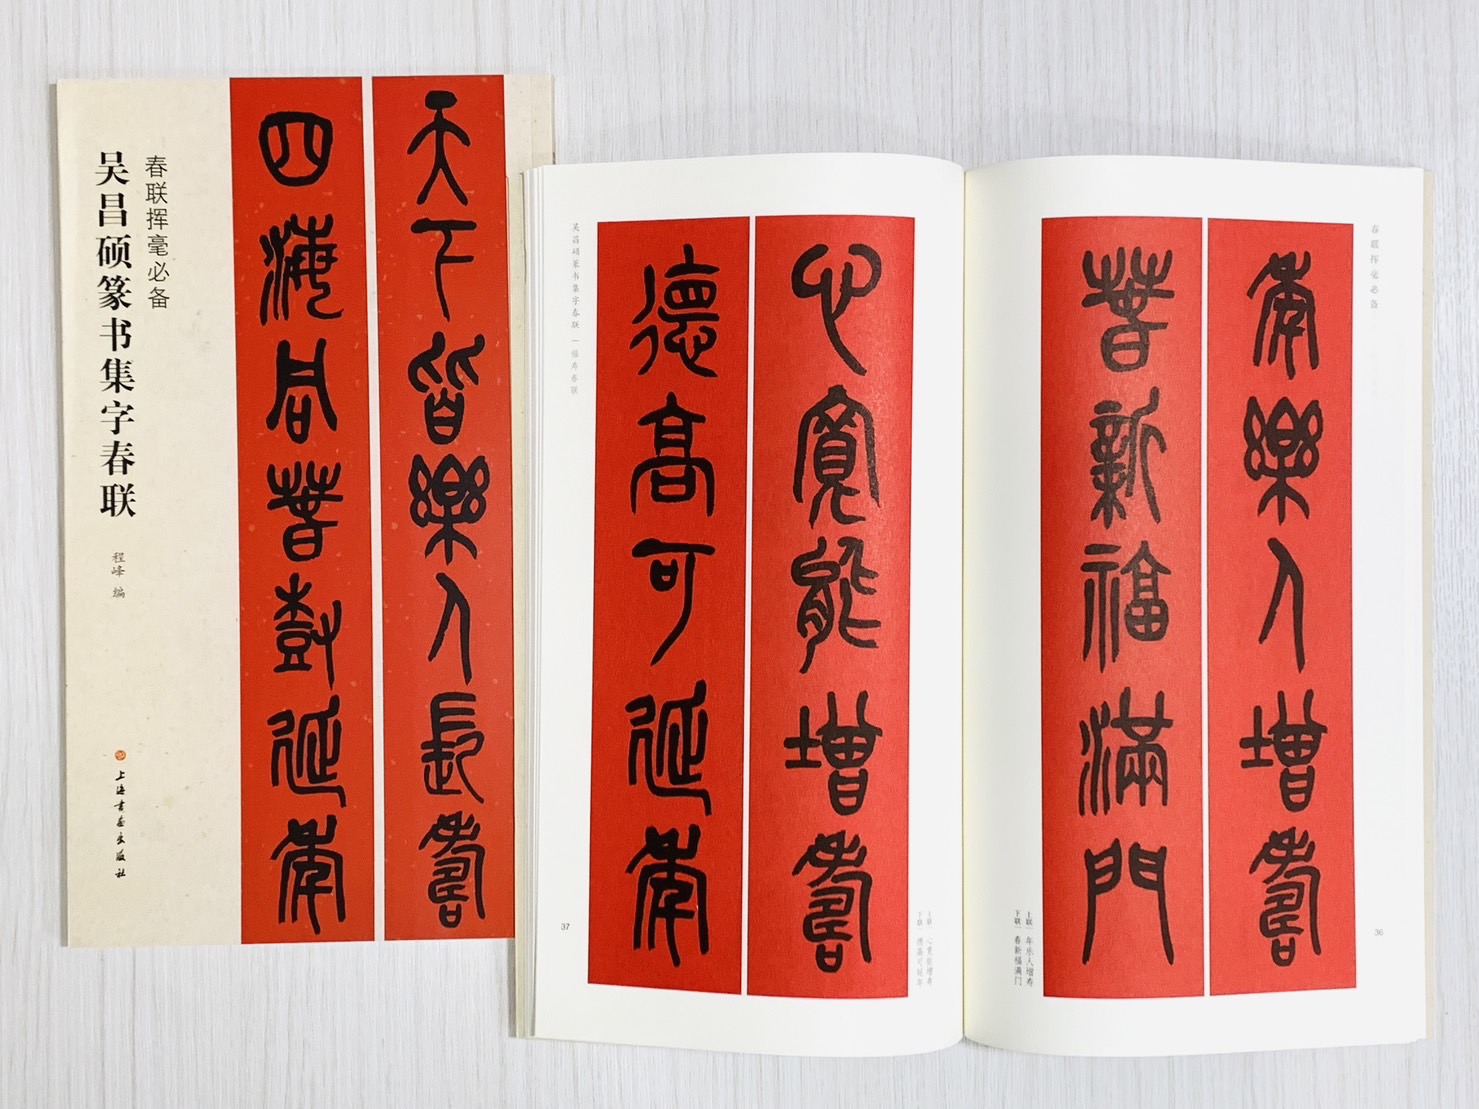 春联挥毫必备
吴昌硕篆书集字春联
程峰 编
上海书画出版社
天下皆樂人長壽
四海同春延年
春联挥毫必备
年樂人增壽
春新福滿門
上联｜年乐人增寿
下联｜春新福满门
36
心寬能增壽
德高可延年
上联｜心宽能增寿
下联｜德高可延年
吴昌硕篆书集字春联｜福寿春联
37